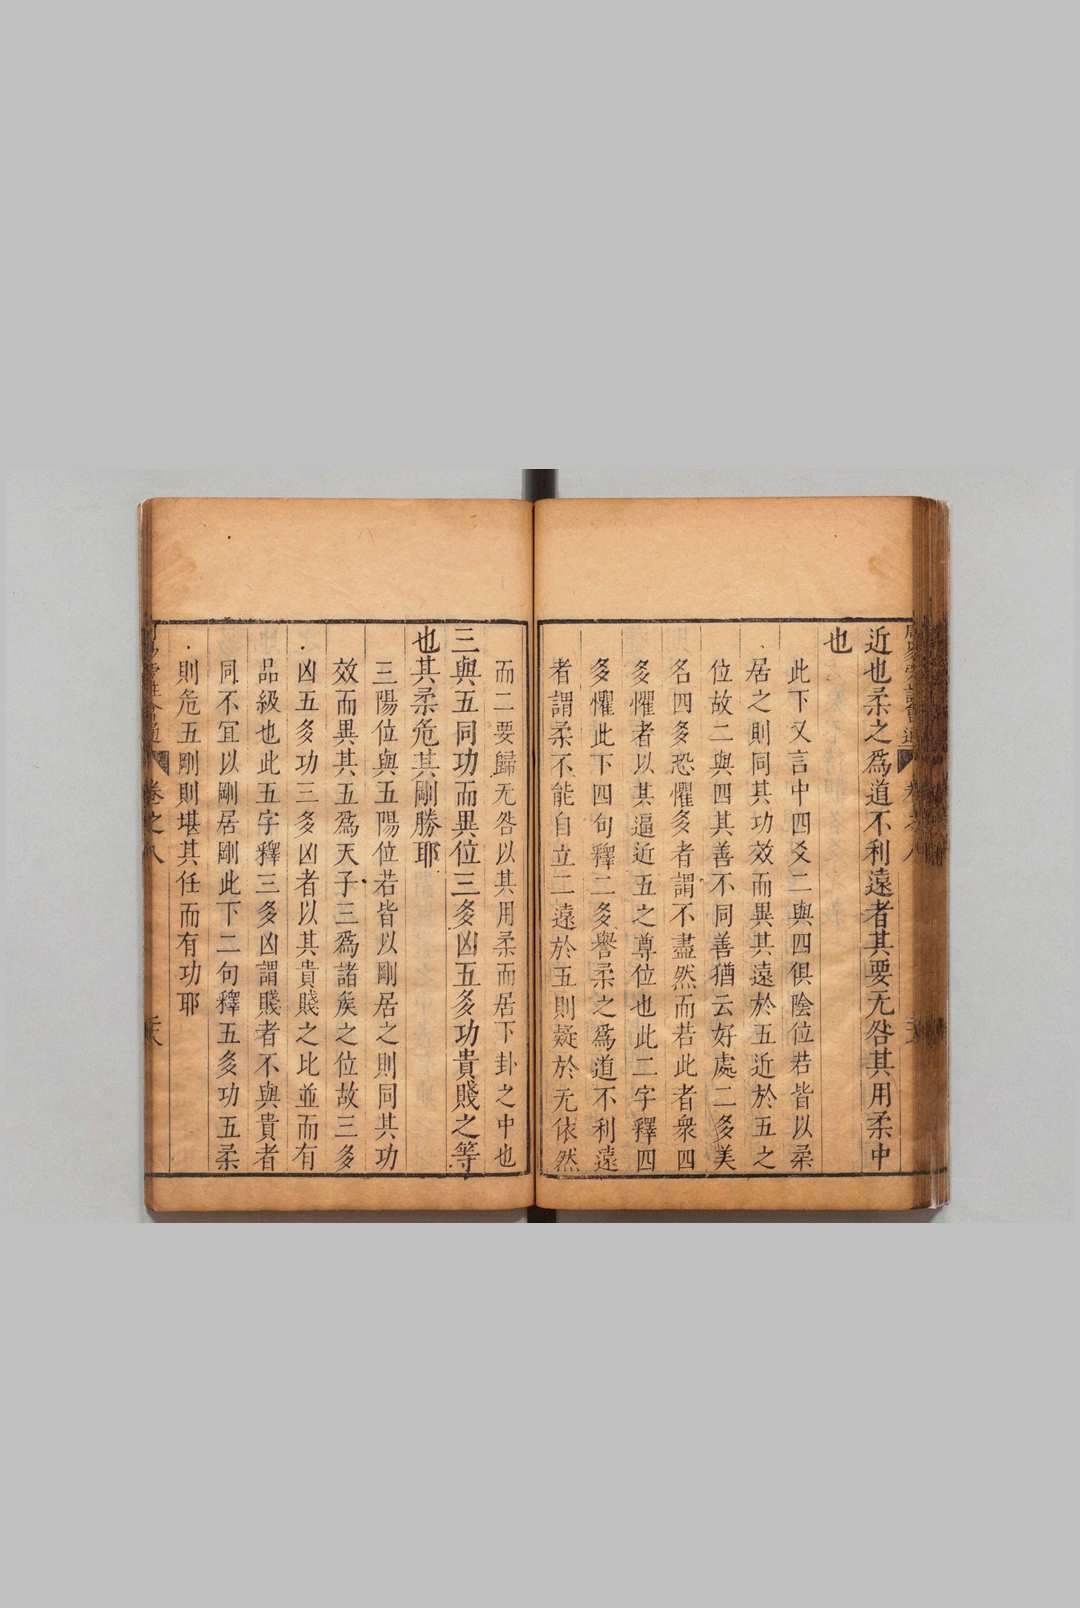 近也柔之爲道不利遠者其要无咎其用柔中
也
此下又言中四爻二與四俱陰位若皆以柔
居之則同其功效而異其遠於五近於五之
位故二與四其善不同善猶云好處二多美
名四多恐懼多者謂不盡然而若此者衆四
多懼者以其逼近五之尊位也此三字釋四
多懼此下四句釋二多譽柔之爲道不利遠
者謂柔不能自立二遠於五則疑於无依然
而二要歸无咎以其用柔而居下卦之中也
三與五同功而異位三多凶五多功貴賤之等
也其柔危其剛勝耶
三陽位與五陽位若皆以剛居之則同其功
效而異其五爲天子三爲諸矦之位故三多
凶五多功三多凶者以其貴賤之比並而有
品級也此五字釋三多凶謂賤者不與貴者
同不冝以剛居剛此下二句釋五多功五柔
則危五剛則堪其任而有功耶
卷之八